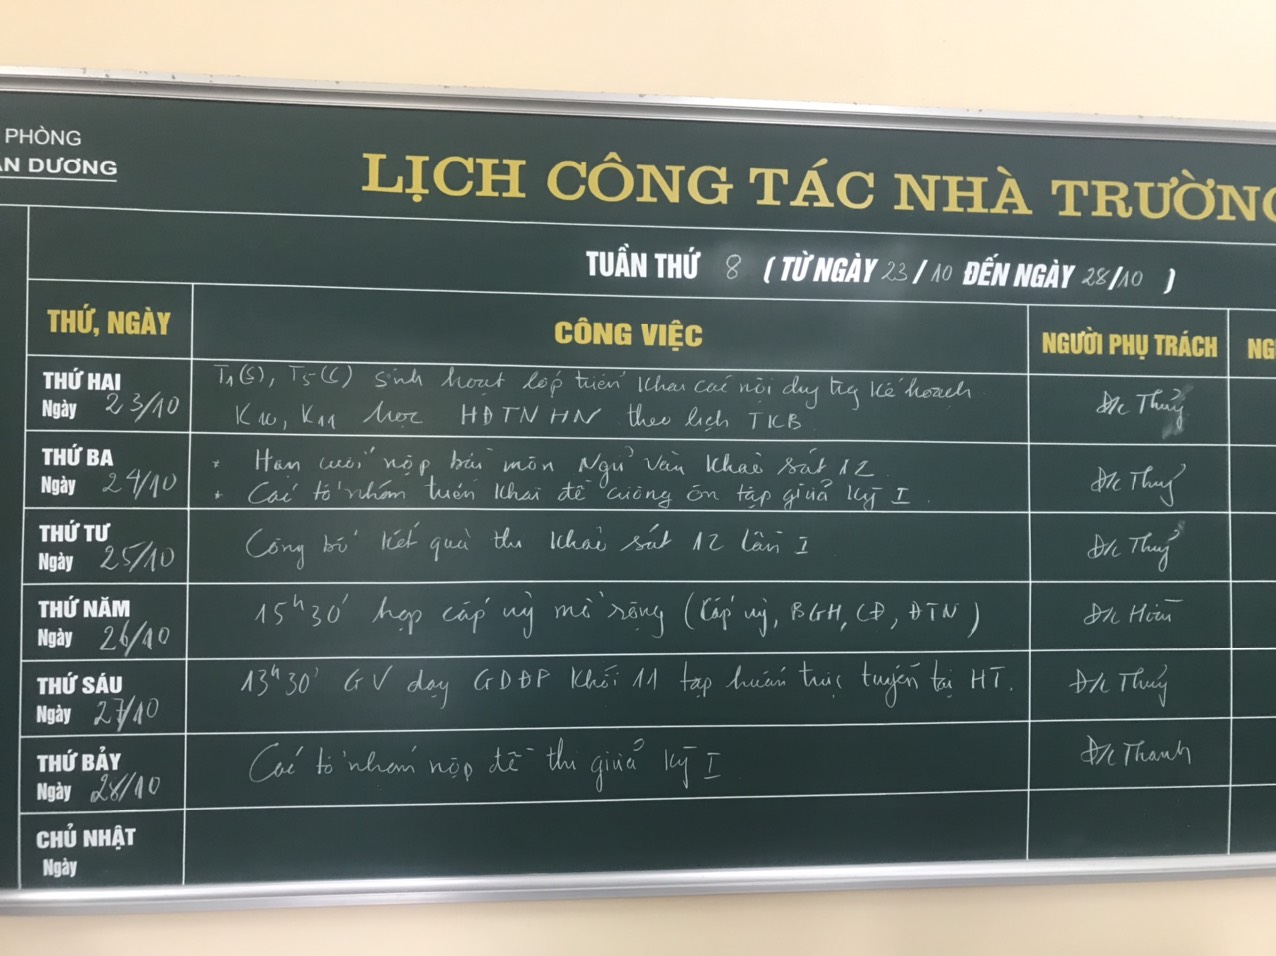 PHÒNG
AN DƯƠNG
LỊCH CÔNG TÁC NHÀ TRƯỜNG
TUẦN THỨ 8 (TỪ NGÀY 23/10 ĐẾN NGÀY 28/10)
THỨ, NGÀY
CÔNG VIỆC
NGƯỜI PHỤ TRÁCH
THỨ HAI
Ngày 23/10
T1(S), T5(C) sinh hoạt lớp triển khai các nội dung kế hoạch
K10, K11 học HĐTNHN theo lịch TKB
Đ/c Thuỷ
THỨ BA
Ngày 24/10
* Hạn cuối nộp bài môn Ngữ Văn khảo sát 12
* Các tổ nhóm triển khai đề cương ôn tập giữa kỳ I.
Đ/c Thuỷ
THỨ TƯ
Ngày 25/10
Công bố kết quả thi khảo sát 12 lần I
Đ/c Thuỷ
THỨ NĂM
Ngày 26/10
15h30' họp cấp uỷ mở rộng (Cấp uỷ, BGH, CĐ, ĐTN)
Đ/c
THỨ SÁU
Ngày 27/10
13h30' GV dạy GDĐP khối 11 tập huấn trực tuyến tại HT.
Đ/c Thuỷ
THỨ BẢY
Ngày 28/10
Các tổ nhóm nộp đề thi giữa kỳ I
Đ/c Thanh
CHỦ NHẬT
Ngày